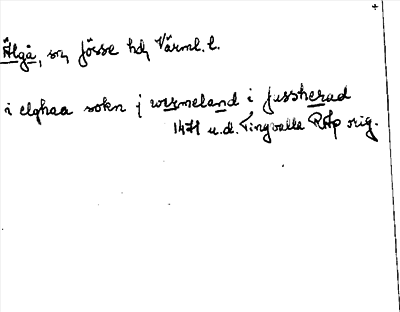 Älgå, sn, Jösse hd, Värml. l.
i elghaa sokn j wermeland i jussherad
1471 u.d. Tingvalla RAp orig.